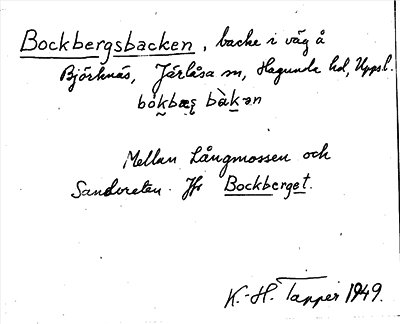 Bockbergsbacken, backe i väg å
Björknäs, Järlåsa sn, Hagunda hd, Uppsl.
bókbæʂ bàkən
Mellan Långmossen och
Sandvreten. Jfr Bockberget.
K.-H. Tapper 1949.